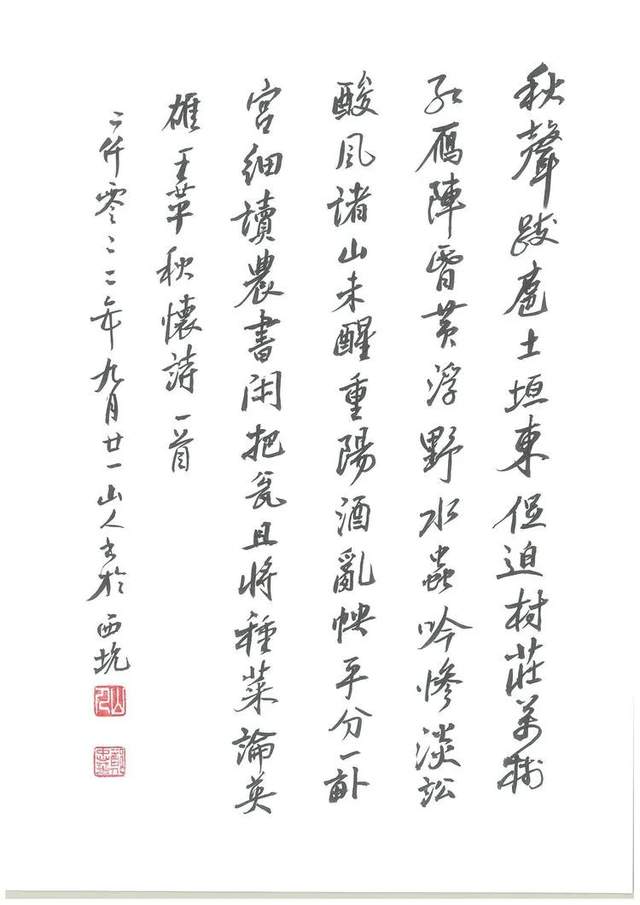 秋聲跋扈土垣東促迫村莊萬樹
紅雁陣昏黃浮野水蟲吟慘淡訟
酸風諸山未醒重陽酒亂帙平分一畝
宮細讀農書閑把瓮且將種菜論英
雄王苹秋懷詩一首
二仟零二二年九月廿一山人書於西坑